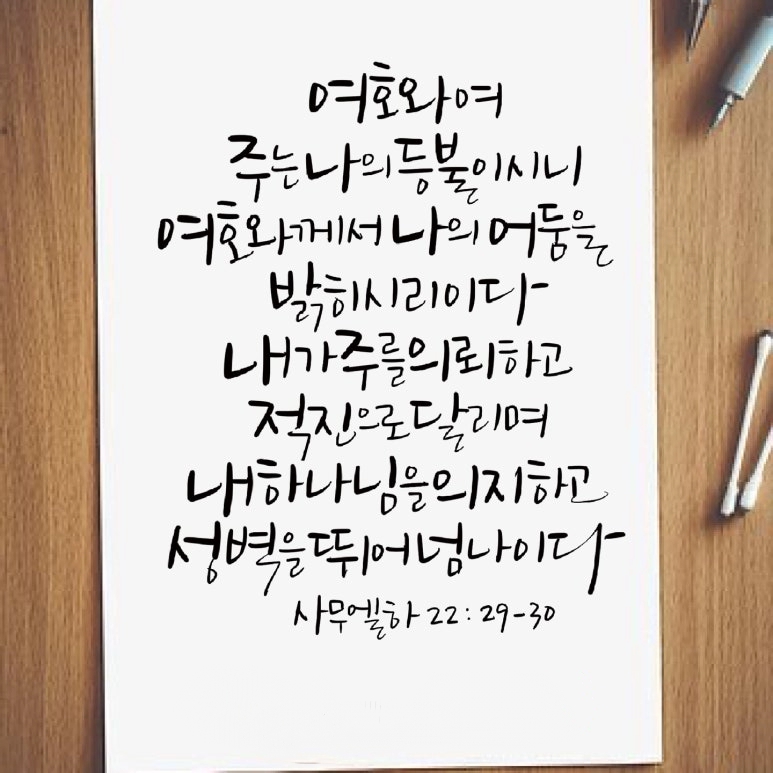 여호와여
주는 나의 등불이시니
여호와께서 나의 어둠을
밝히시리이다
내가 주를 의뢰하고
적진으로 달리며
내 하나님을 의지하고
성벽을 뛰어넘나이다
사무엘하 22:29-30